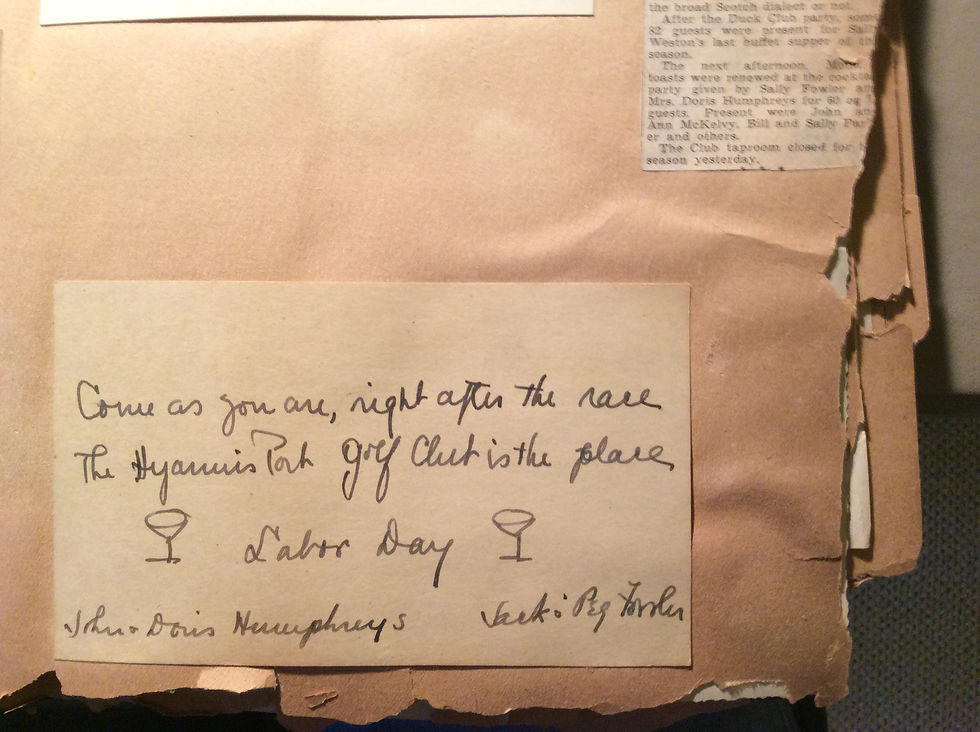 the broad Scotch dialect or not.
After the Duck Club party, some
82 guests were present for Sally
Weston's last buffet supper of the
season.
The next afternoon, More
toasts were renewed at the cockta
party given by Sally Fowler an
Mrs. Doris Humphreys for 60 or
guests. Present were John an
Ann McKelvy, Bill and Sally Par
er and others.
The Club taproom closed for
season yesterday.
Come as you are, right after the race
The Hyannis Port Golf Club is the place
Labor Day
John & Doris Humphreys Jack & Peg Fowler